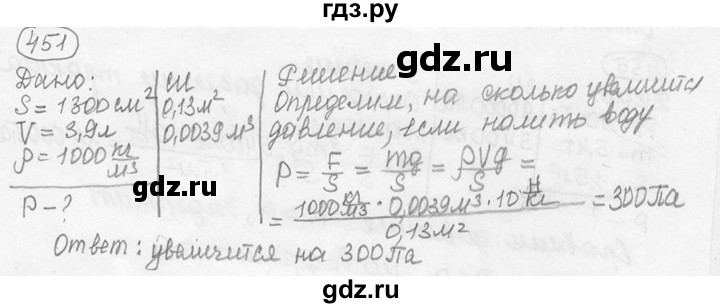 гдз.ру
451
Дано:
S = 1300 см²
V = 3,9 л
ρ = 1000 кг/м3
P - ?
СИ
0,13 м²
0,0039 м³
Решение
Определим, на сколько увеличится
давление, если налить воду
P = F/S = mg/S = ρVg/S =
= 1000 кг/м3 · 0,0039 м³ · 10 Н/кг / 0,13 м² = 300 Па
Ответ: увеличится на 300 Па
gdz.ru